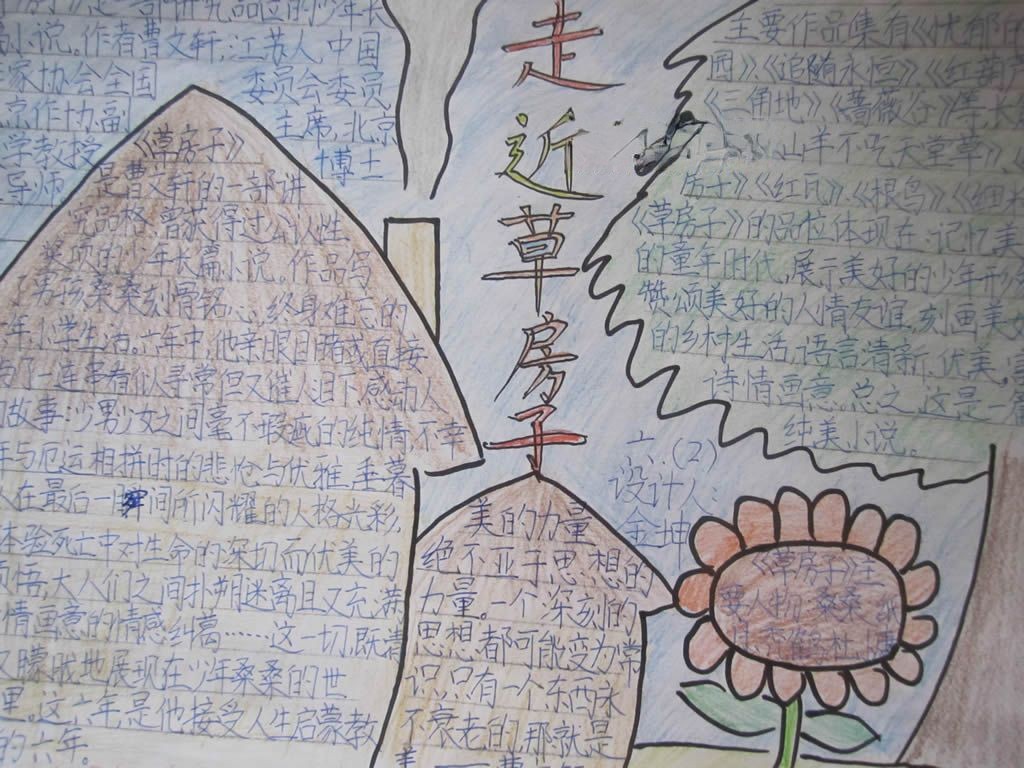 走近草房子
小说。作者曹文轩:江苏人,中国
家协会全国委员会委员
京作协副主席,北京
学教授博士
导师
《草房子》
是曹文轩的一部讲
究品格曾获得过公认性
奖项的少年长篇小说。作品写
男孩桑桑刻骨铭心,终身难忘的
年小学生活。六年中,他亲眼目睹或直接
一连串看似寻常但又催人泪下,感动人
故事:少男少女之间毫不瑕疵的纯情,不幸
与厄运相拼时的悲怆与优雅,垂暮
在最后一瞬间所闪耀的人格光彩,
体验死亡中对生命的深切而优美的
悟,大人们之间扑朔迷离且又充满
情画意的情感纠葛……这一切,既清
又朦胧地展现在少年桑桑的世
里。这六年,是他接受人生启蒙教
的六年。
主要作品集有《忧郁的
园》《追随永恒》《红葫芦》
《三角地》《蔷薇谷》等长篇
山羊不吃天堂草》
《红瓦》《根鸟》《细米》
《草房子》的品位体现在:记忆美
的童年时代,展示美好的少年形象
赞颂美好的人情友谊,刻画美好
的乡村生活,语言清新、优美。富
诗情画意,总之,这是一篇
纯美小说。
六.(2)
设计人:
金坤
美的力量
绝不亚于思想的
力量。一个深刻的
思想都可能变为常
识,只有一个东西永
不衰老的,那就是
美
《草房子》主
要人物:桑桑、纸
月、秃鹤、杜小康